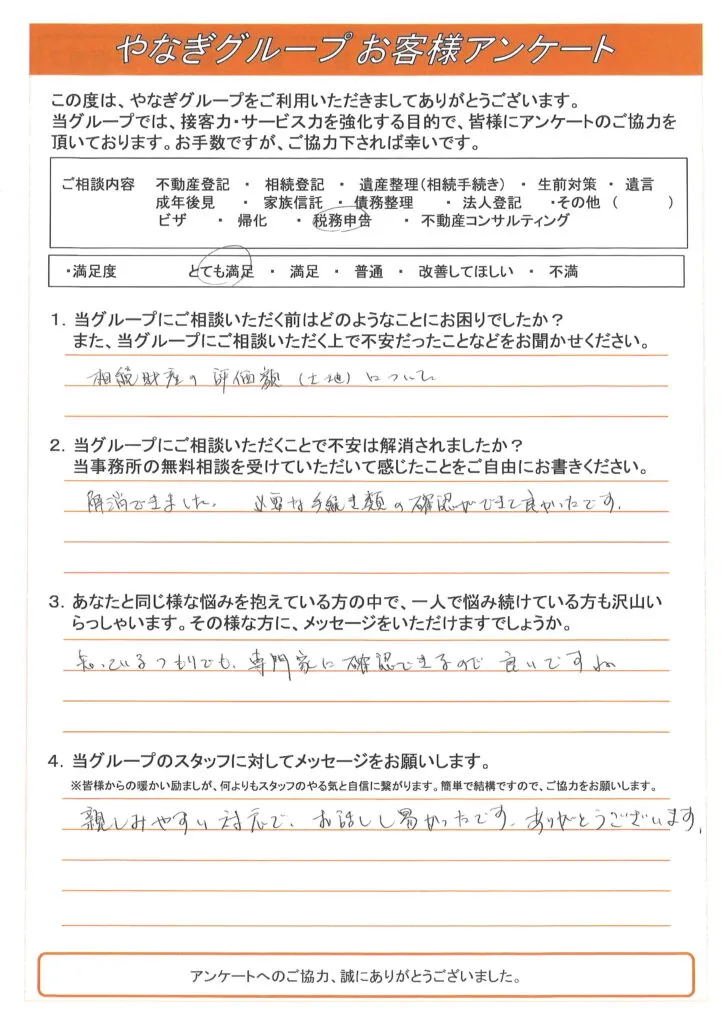 やなぎグループ お客様アンケート
この度は、やなぎグループをご利用いただきましてありがとうございます。
当グループでは、接客力・サービス力を強化する目的で、皆様にアンケートのご協力を
頂いております。お手数ですが、ご協力下されば幸いです。
ご相談内容 不動産登記 ・ 相続登記 ・ 遺産整理(相続手続き) ・ 生前対策 ・ 遺言
成年後見 ・ 家族信託 ・ 債務整理 ・ 法人登記 ・その他 ( )
ビザ ・ 帰化 ・ 税務申告 ・ 不動産コンサルティング
・満足度 とても満足 ・ 満足 ・ 普通 ・ 改善してほしい ・ 不満
1. 当グループにご相談いただく前はどのようなことにお困りでしたか?
また、当グループにご相談いただく上で不安だったことなどをお聞かせください。
相続財産の評価額(土地)について
2. 当グループにご相談いただくことで不安は解消されましたか?
当事務所の無料相談を受けていただいて感じたことをご自由にお書きください。
解消できました。 必要な手続き類の確認ができて良かったです.
3. あなたと同じ様な悩みを抱えている方の中で、一人で悩み続けている方も沢山い
らっしゃいます。その様な方に、メッセージをいただけますでしょうか。
知っているつもりでも、専門家に確認できるので良いですね
4. 当グループのスタッフに対してメッセージをお願いします。
※皆様からの暖かい励ましが、何よりもスタッフのやる気と自信に繋がります。簡単で結構ですので、ご協力をお願いします。
親しみやすい対応で、お話しし易かったです. ありがとうございます.
アンケートへのご協力、誠にありがとうございました。